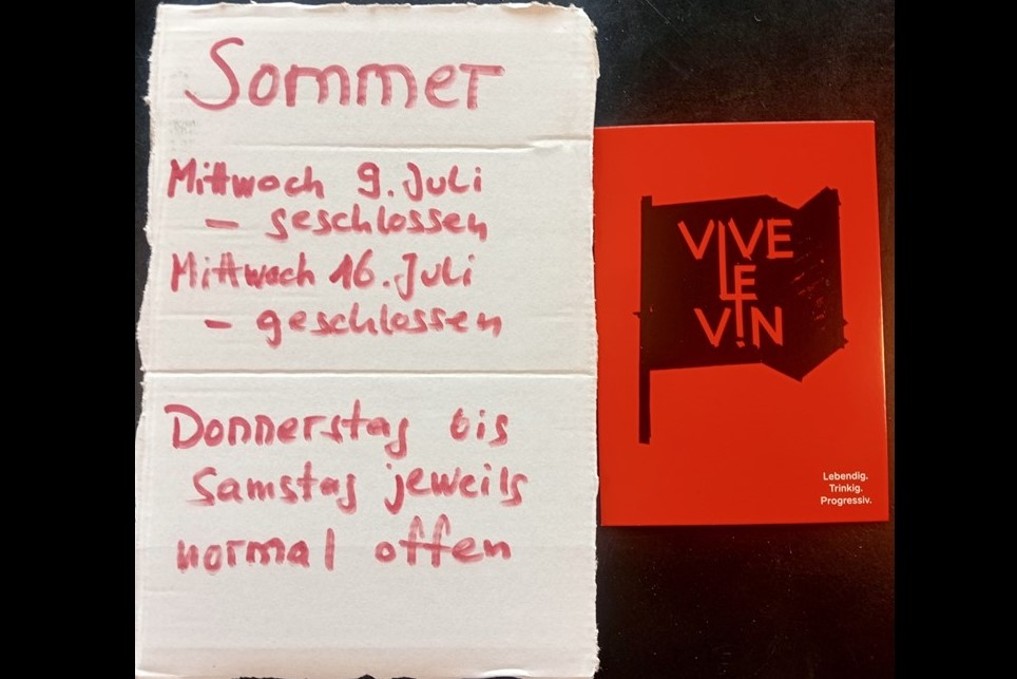 Sommer
Mittwoch 9. Juli
– geschlossen
Mittwoch 16. Juli
– geschlossen
Donnerstag bis
Samstag jeweils
normal offen
VIVE
LE
VIN
Lebendig.
Trinkig.
Progressiv.